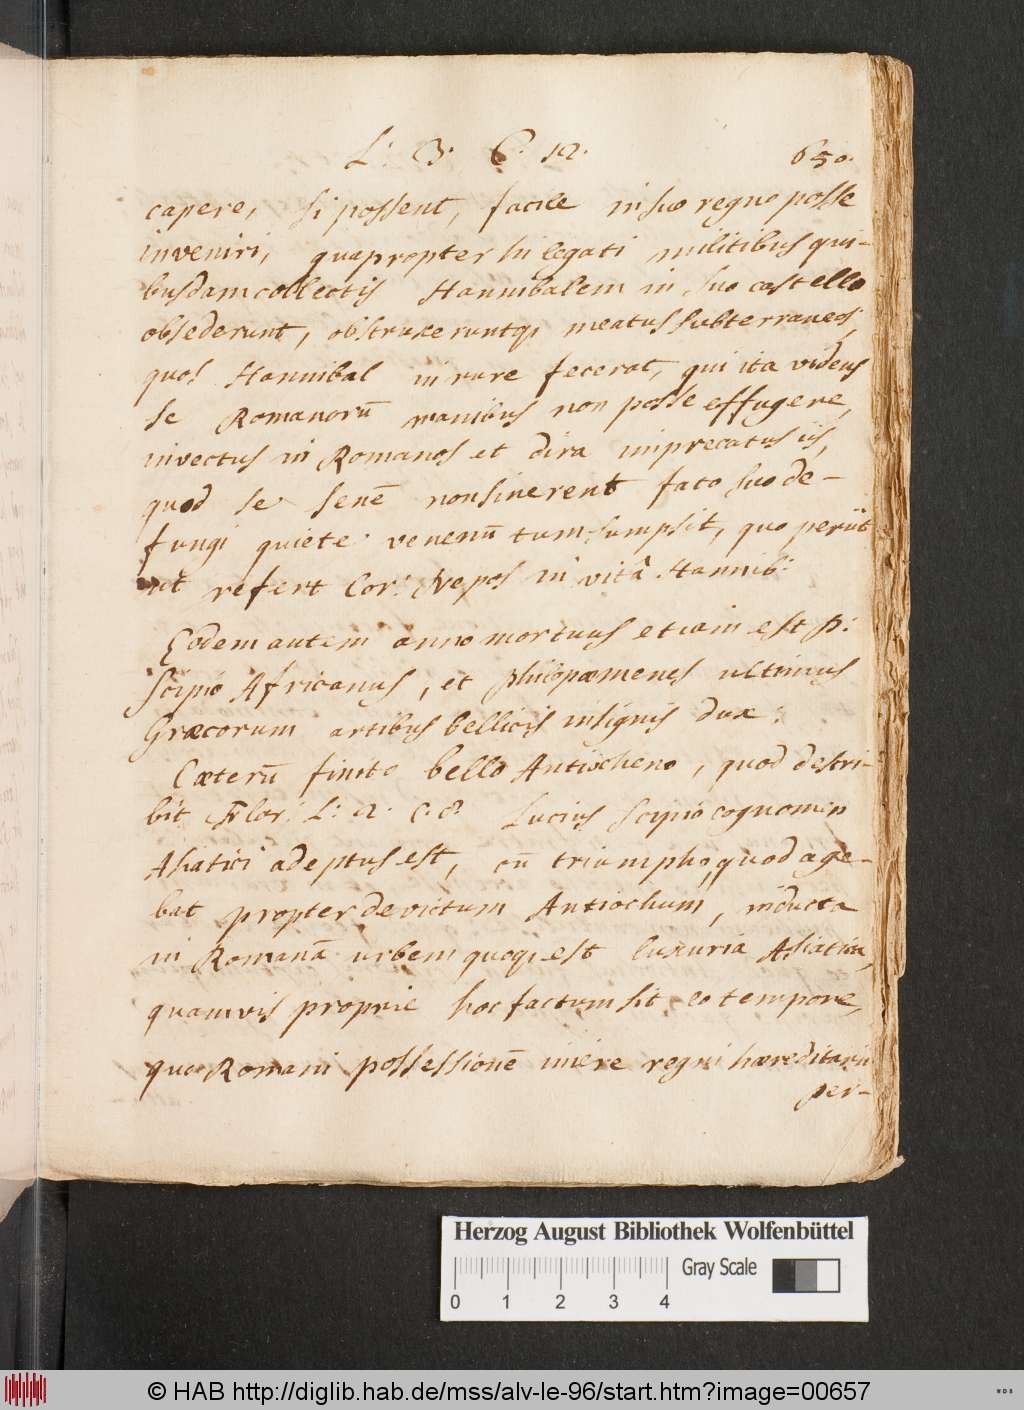 L: 3. C. 12. 650.
capere, si possent, facile in suo regno posse
inveniri, quapropter hi legati militibus qui-
busdam collectis Hannibalem in suo castello
obsederunt, obstruxeruntq; meatus subterraneos,
quos Hannibal in rure fecerat, qui ita videns
se Romanorū manibus non posse effugere,
invectus in Romanos et dira imprecatus iis,
quod se senē non sinerent fato suo de-
fungi quiete venenū tum sumpsit, quo periit
ut refert Cor: Nepos in vitâ Hannib:
Eodem autem anno mortuus etiam est P:
Scipio Africanus, et Philopœmenes ultimus
Græcorum artibus bellicis insignis dux:
Cæterū finito bello Antiocheno, quod destri-
bit Flor: L: 2. C. 8. Lucius Scipio cognomen
Asiatici adeptus est, cū triumpho, quod age-
bat propter devictum Antiochum, inducta
in Romanā urbem quoq; est luxuria Asiatica,
quamvis proprie hoc factum sit eo tempore,
quo Romani possessionē iniere regni hæreditarii
per-
Herzog August Bibliothek Wolfenbüttel
Gray Scale
0 1 2 3 4
© HAB http://diglib.hab.de/mss/alv-le-96/start.htm?image=00657